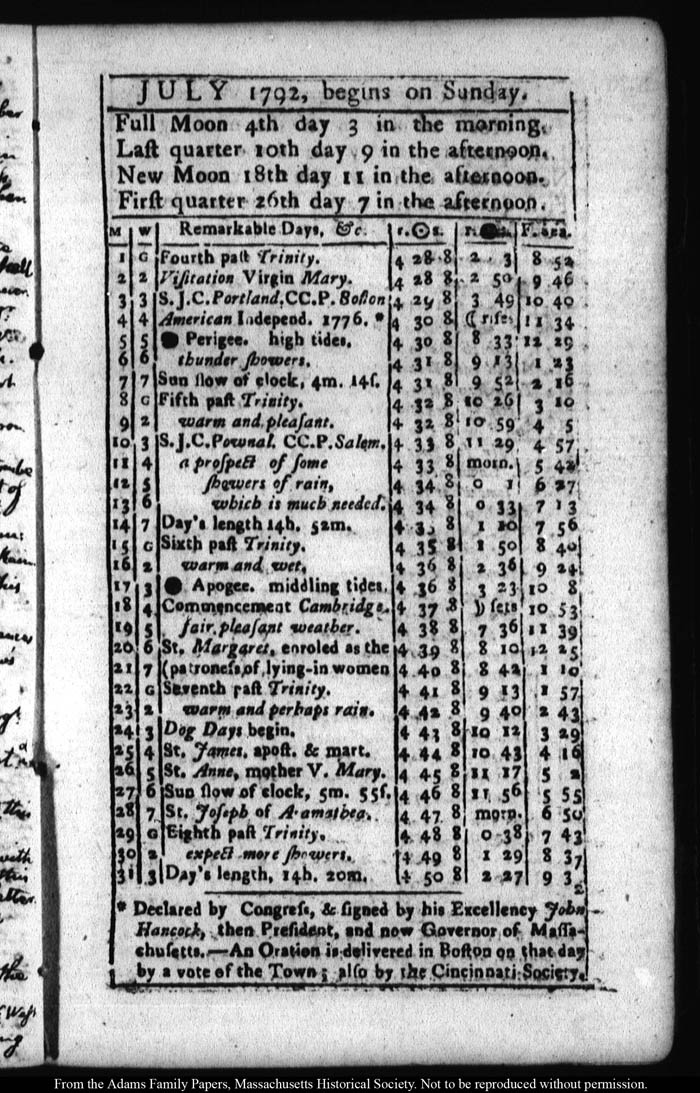 JULY 1792, begins on Sunday.
Full Moon 4th day 3 in the morning.
Laſt quarter 10th day 9 in the afternoon.
New Moon 18th day 11 in the afternoon.
Firſt quarter 26th day 7 in the afternoon.
M W Remarkable Days, &c. r.☉s. F. sea.
1 G Fourth paſt Trinity. 4 28 8 2 3 8 52
2 2 Viſitation Virgin Mary. 4 28 8 2 50 9 46
3 3 S.J.C. Portland, CC.P. Boſton 4 29 8 3 49 10 40
4 4 American Independ. 1776. * 4 30 8 ☾ riſes 11 34
5 5 ● Perigee. high tides. 4 30 8 8 33 12 29
6 6 thunder ſhowers. 4 31 8 9 13 1 23
7 7 Sun ſlow of clock, 4m. 14ſ. 4 31 8 9 52 2 16
8 G Fifth paſt Trinity. 4 32 8 10 26 3 10
9 2 warm and pleaſant. 4 32 8 10 59 4 5
10 3 S.J.C. Pownal. CC.P. Salem. 4 33 8 11 29 4 57
11 4 a proſpect of ſome 4 33 8 morn. 5 42
12 5 ſhowers of rain, 4 34 8 0 1 6 27
13 6 which is much needed. 4 34 8 0 33 7 13
14 7 Day's length 14h. 52m. 4 35 8 1 10 7 56
15 G Sixth paſt Trinity. 4 35 8 1 50 8 40
16 2 warm and wet. 4 36 8 2 36 9 24
17 3 ● Apogee. middling tides. 4 36 8 3 23 10 8
18 4 Commencement Cambridge. 4 37 8 ☽ ſets 10 53
19 5 fair, pleaſant weather. 4 38 8 7 36 11 39
20 6 St. Margaret, enroled as the 4 39 8 8 10 12 25
21 7 (patroneſs of lying-in women 4 40 8 8 42 1 10
22 G Seventh paſt Trinity. 4 41 8 9 13 1 57
23 2 warm and perhaps rain. 4 42 8 9 40 2 43
24 3 Dog Days begin. 4 43 8 10 12 3 29
25 4 St. James, apoſt. & mart. 4 44 8 10 43 4 16
26 5 St. Anne, mother V. Mary. 4 45 8 11 17 5 2
27 6 Sun ſlow of clock, 5m. 55ſ. 4 46 8 11 56 5 55
28 7 St. Joſeph of 4 47 8 morn. 6 50
29 G Eighth paſt Trinity. 4 48 8 0 38 7 43
30 2 expect more ſhowers. 4 49 8 1 29 8 37
31 3 Day's length, 14h. 20m. 4 50 8 2 27 9 32
* Declared by Congreſs, & ſigned by his Excellency John
Hancock, then Preſident, and now Governor of Maſſa-
chuſetts.—An Oration is delivered in Boſton on that day
by a vote of the Town; alſo by the Cincinnati Society.
From the Adams Family Papers, Massachusetts Historical Society. Not to be reproduced without permission.